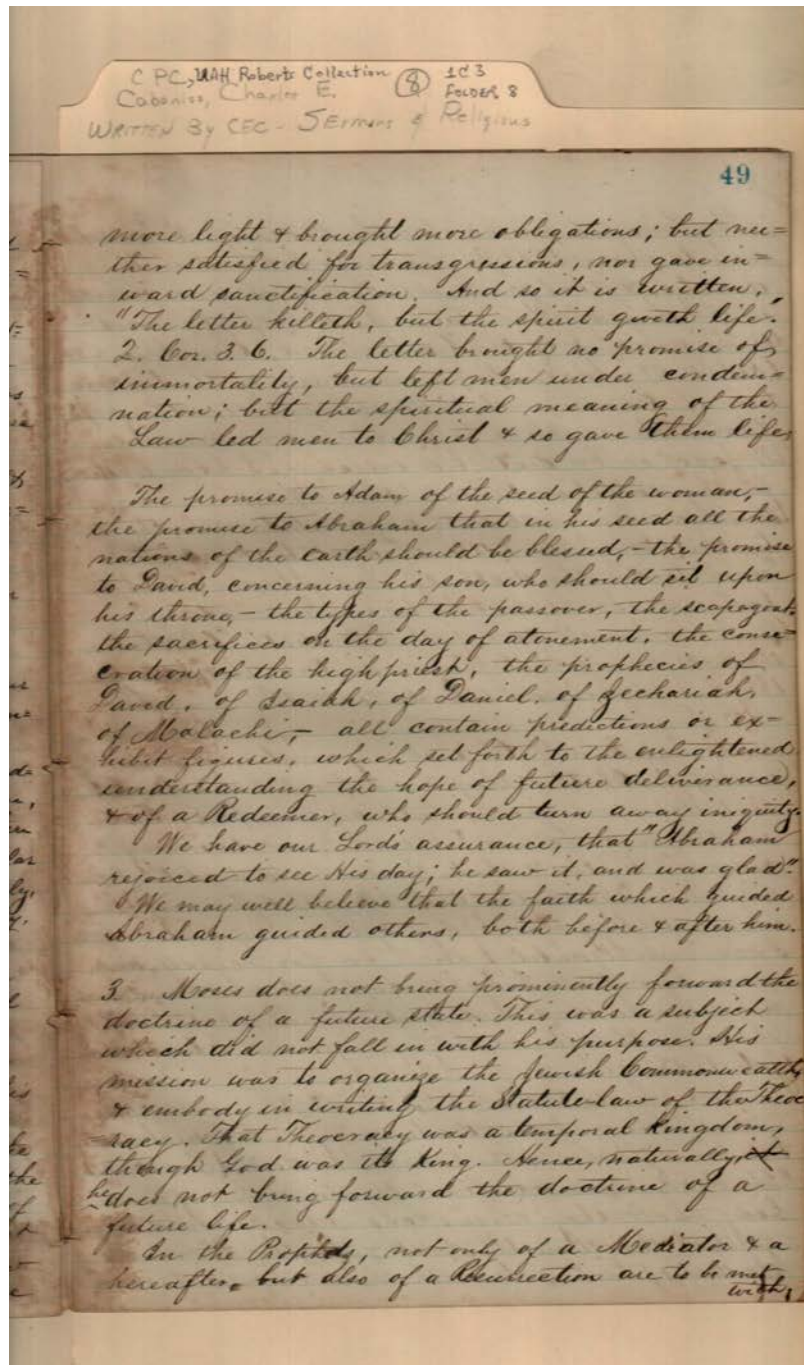 C PC, UAH Roberts Collection
8
1C3
FOLDER 8
Cabaniss, Charles E.
WRITTEN By CEC - SErmons & Religious
49
more light & brought more obligations; but nei=
ther satisfied for transgressions, nor gave in=
ward sanctification. And so it is written,
"The letter killeth, but the spirit giveth life."
2. Cor. 3. 6. The letter brought no promise of
immortality, but left men under condem=
nation; but the spiritual meaning of the
Law led men to Christ & so gave them life,
The promise to Adam of the seed of the woman,-
the promise to Abraham that in his seed all the
nations of the earth should be blessed,- the promise
to David, concerning his son, who should sit upon
his throne,- the types of the passover, the scapegoat,
the sacrifices on the day of atonement, the conse=
cration of the high priest, the prophecies of
David, of Isaiah, of Daniel, of Zechariah,
of Malachi,- all contain predictions or ex-
hibit figures, which set forth to the enlightened
understanding the hope of future deliverance,
& of a Redeemer, who should turn away iniquity.
We have our Lord's assurance, that "Abraham
rejoiced to see His day; he saw it, and was glad."
We may well believe that the faith which guided
Abraham guided others, both before & after him.
3 Moses does not bring prominently forward the
doctrine of a future state. This was a subject
which did not fall in with his purpose. His
mission was to organize the Jewish Commonwealth,
& embody in writing the Statute-law of the Theoc
=racy. That Theocracy was a temporal kingdom,
though God was its King. Hence, naturally, it
he does not bring forward the doctrine of a
future life.
In the Prophets, not only of a Mediator & a
hereafter, but also of a Resurrection are to be met
with,